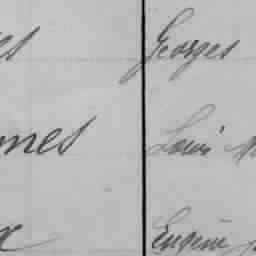 es Georges
mes Louis
x Eugène